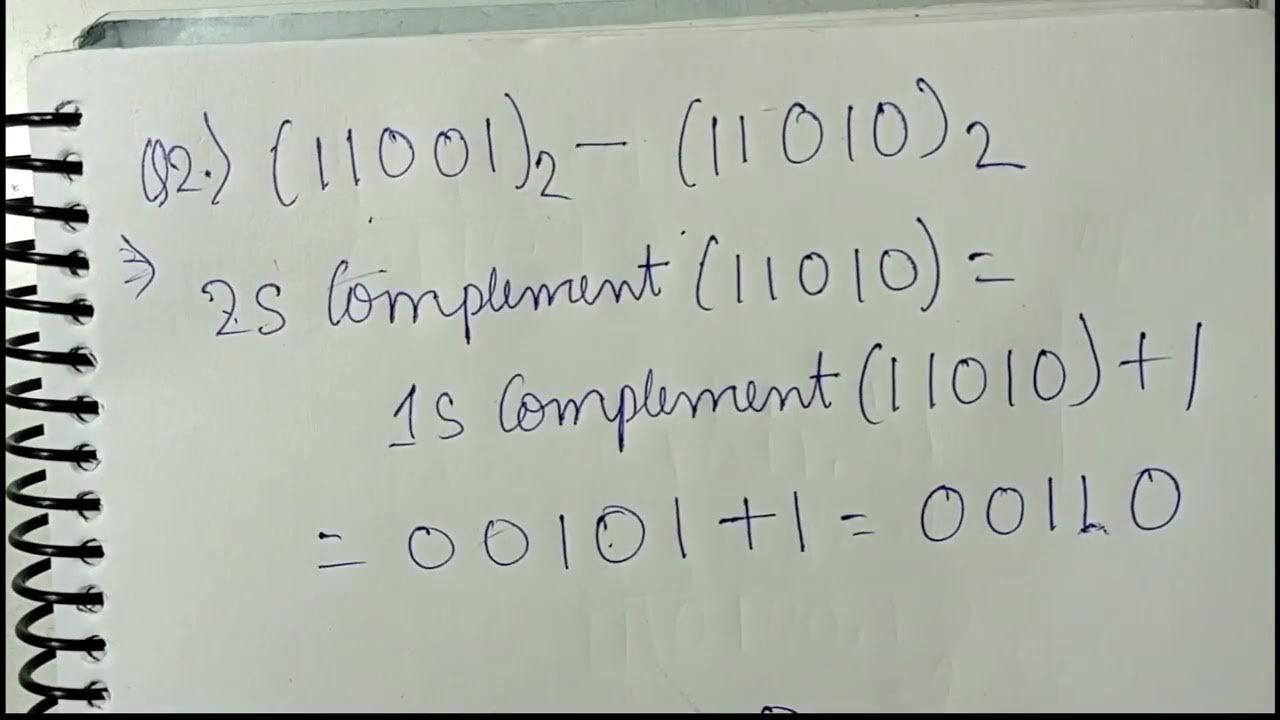 Q2.) (11001)₂ - (11010)₂
⇒ 2s Complement (11010) =
1s Complement (11010) + 1
= 00101 + 1 = 00110